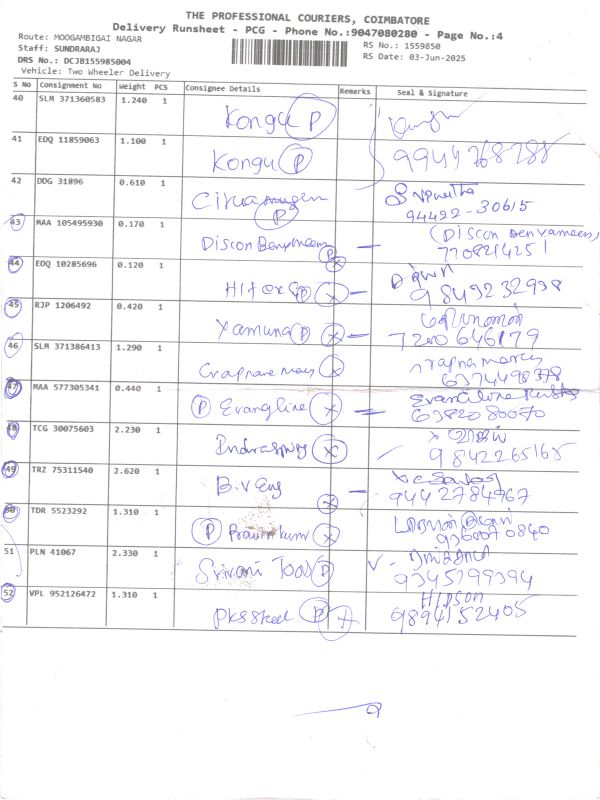 THE PROFESSIONAL COURIERS, COIMBATORE
Delivery Runsheet - PCG - Phone No.:9047080280 - Page No.:4
Route: MOOGAMBIGAI NAGAR
RS No.: 1559850
Staff: SUNDRARAJ
RS Date: 03-Jun-2025
DRS No.: DCJB155985004
Vehicle: Two Wheeler Delivery
S No Consignment No Weight PCS Consignee Details Remarks Seal & Signature
40 SLM 371360583 1.240 1 Kongu P
41 EDQ 11859063 1.100 1 Kongu P 9944768788
42 DDG 31896 0.610 1 P
94422-30615
43 MAA 105495930 0.170 1 Discon Benyameen P (Discon Benyameen)
7708214251
44 EDQ 10285696 0.120 1 P X 9843232938
45 RJP 1206492 0.420 1 Yamuna P X 7200646179
46 SLM 371386413 1.290 1 X 6374498378
47 MAA 577305341 0.440 1 P Evangline X
6382080070
48 TCG 30075603 2.230 1 X
9842265165
49 TRZ 75311540 2.620 1 B.V Eng X
9442784767
50 TDR 5523292 1.310 1 P Pravin kumar X
9360070840
51 PLN 41067 2.330 1 Srivani P
9345799394
52 VPL 952126472 1.310 1 Pks Steel P
9894152405